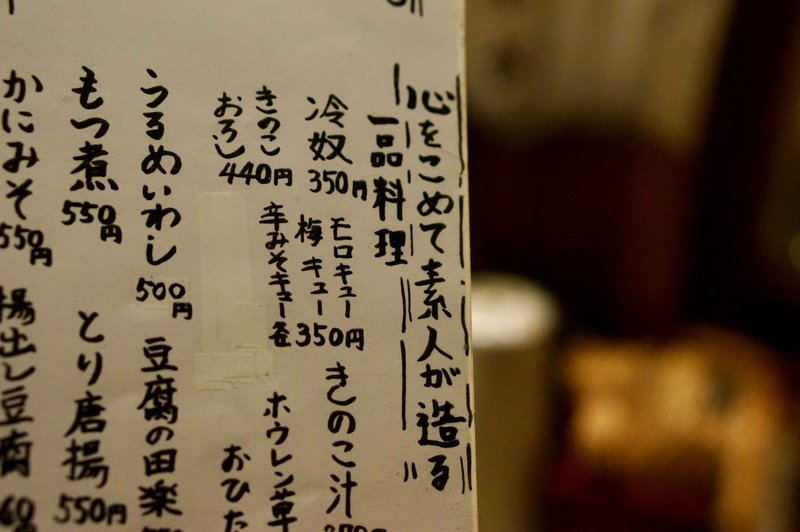 心をこめて素人が造る
一品料理
冷奴
350円
モロキュー
梅キュー
辛みそキュー
各350円
きのこ汁
きのこ
おろし
440円
ホウレン草
おひた
うるめいわし
500円
豆腐の田楽
もつ煮
550円
とり唐揚
550円
かにみそ
550円
揚出し豆腐